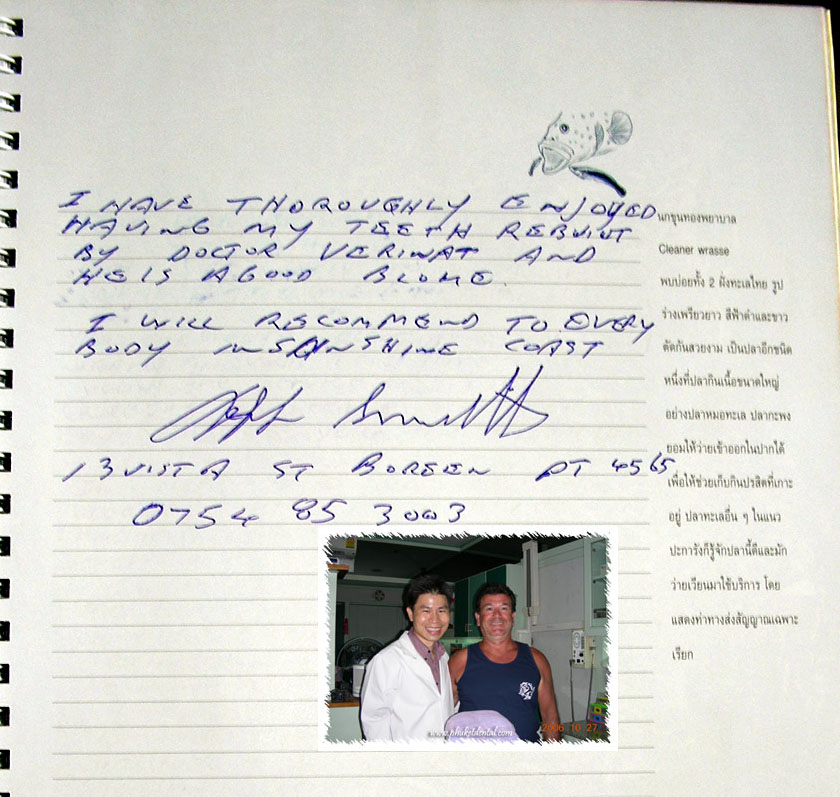 I HAVE THOROUGHLY ENJOYED
HAVING MY TEETH REBUILT
BY DOCTOR VERIWAT AND
HE IS A GOOD BLOKE.
I WILL RECOMMEND TO EVERY
BODY IN SUNSHINE COAST
13 VISTA ST BOREEN PT 4565
0754 85 3003
นกขุนทองพยาบาล
Cleaner wrasse
พบบ่อยทั้ง 2 ฝั่งทะเลไทย รูป
ร่างเพรียวยาว สีฟ้าดำและขาว
ตัดกันสวยงาม เป็นปลาอีกชนิด
หนึ่งที่ปลากินเนื้อขนาดใหญ่
อย่างปลาหมอทะเล ปลากะพง
ยอมให้ว่ายเข้าออกในปากได้
เพื่อให้ช่วยเก็บกินปรสิตที่เกาะ
อยู่ ปลาทะเลอื่น ๆ ในแนว
ปะการังก็รู้จักปลานี้ดีและมัก
ว่ายเวียนมาใช้บริการ โดย
แสดงท่าทางส่งสัญญาณเฉพาะ
เรียก
www.phuketdental.com
2006 10 27